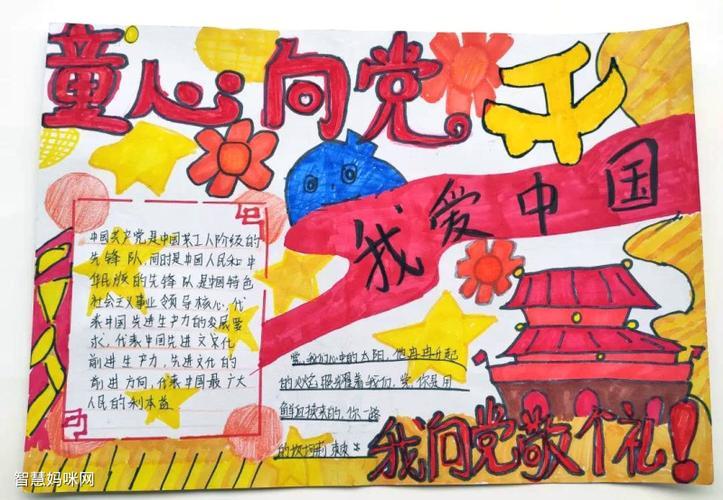 童心向党
我爱中国
中国共产党是中国某工人阶级的
先锋队，同时是中国人民和中
华民族的先锋队是中国特色
社会主义事业领导核心，代
表中国先进生产力的发展要
求，代表中国先进文化
前进生产力，先进文化的
前进方向，代表中国最广大
人民的利本益
党，我们心中的太阳，他冉冉升起
的火焰照耀着我们，党，你是用
鲜血换来的，你一路
我向党敬个礼！
智慧妈咪网